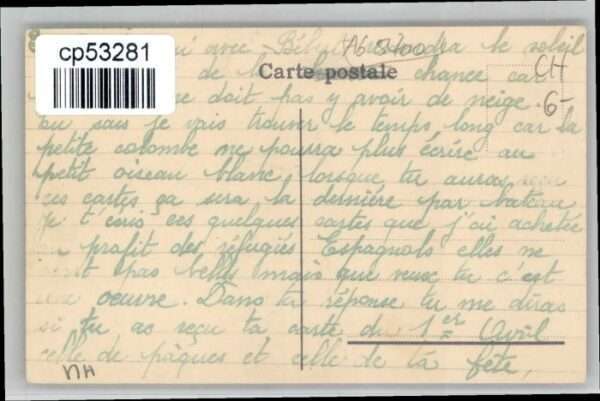 cp53281
A6 5400
CH
6-
Carte postale
qui avec Bébé reprendra le soleil
de la chance car
ne doit pas y avoir de neige.
tu sais je vais trouver le temps long car la
petite colombe ne pourra plus écrire au
petit oiseau blanc, lorsque tu auras reçu
ces cartes ça sera la dernière par bateau
je t'écris ces quelques cartes que j'ai achetée
au profit des réfugiés Espagnols elles ne
sont pas belles mais que veux tu c'est
une oeuvre. Dans ta réponse tu me diras
si tu as reçu ta carte du 1er Avril
celle de pâques et celle de ta fête,
NH